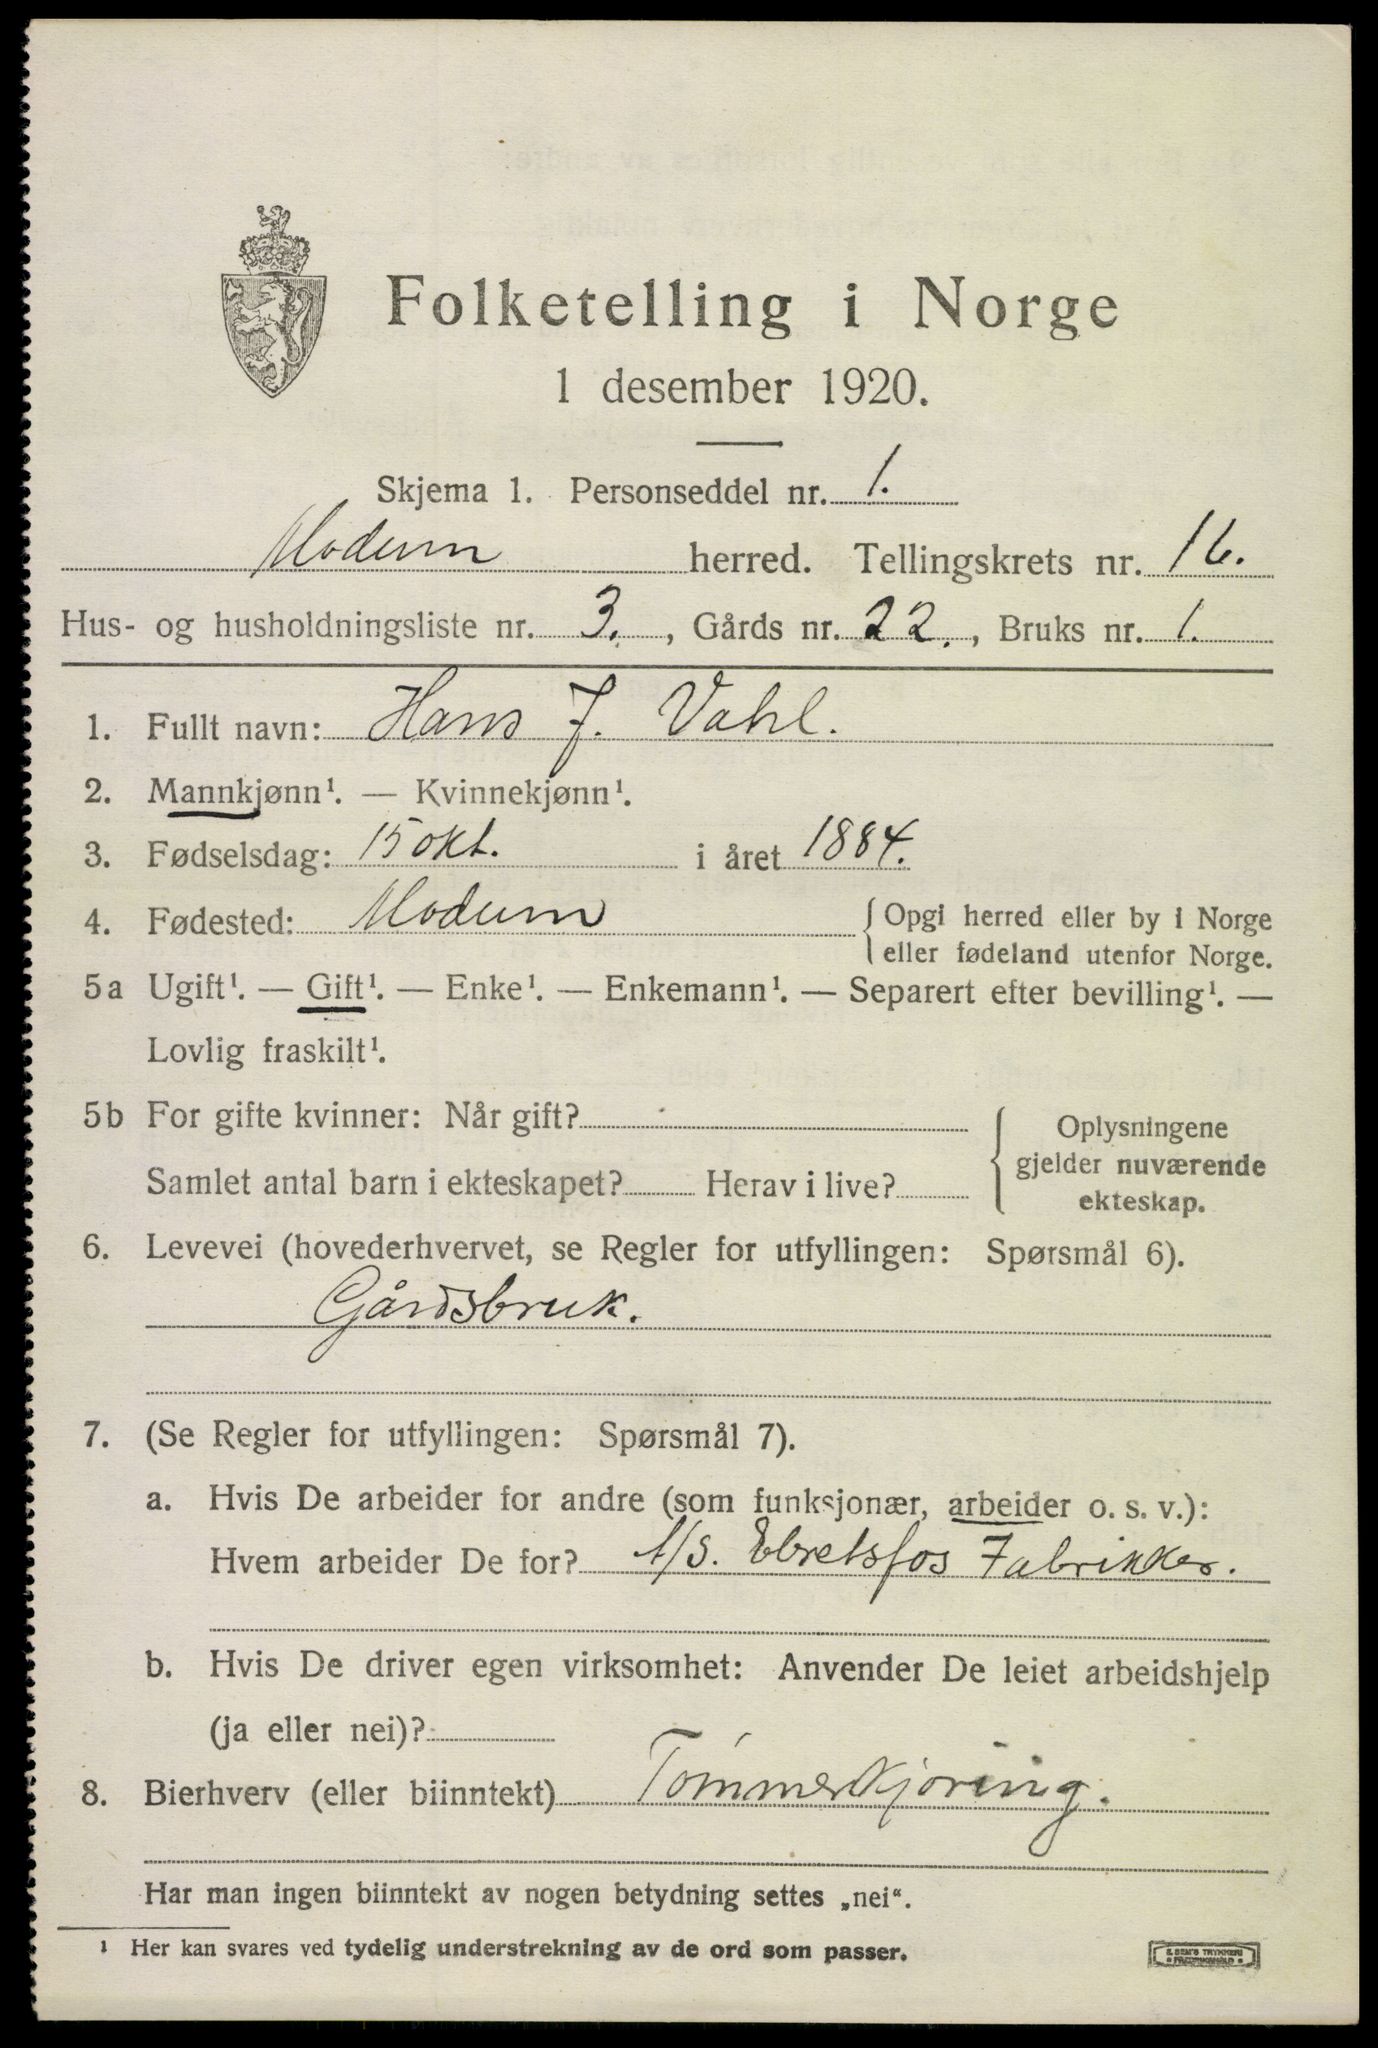 Folketelling i Norge
1 desember 1920.
Skjema 1. Personseddel nr. 1.
Modum herred. Tellingskrets nr. 16.
Hus- og husholdningsliste nr. 3., Gårds nr. 22., Bruks nr. 1.
1. Fullt navn: Hans J. Vahl.
2. Mannkjønn¹. — Kvinnekjønn¹.
3. Fødselsdag: 15 okt. i året 1884.
4. Fødested: Modum { Opgi herred eller by i Norge
eller fødeland utenfor Norge.
5a Ugift¹. — Gift¹. — Enke¹. — Enkemann¹. — Separert efter bevilling¹. —
Lovlig fraskilt¹.
5b For gifte kvinner: Når gift?
Samlet antal barn i ekteskapet? Herav i live?
{ Oplysningene
gjelder nuværende
ekteskap.
6. Levevei (hovederhvervet, se Regler for utfyllingen: Spørsmål 6).
Gårdsbruk.
7. (Se Regler for utfyllingen: Spørsmål 7).
a. Hvis De arbeider for andre (som funksjonær, arbeider o. s. v.):
Hvem arbeider De for? A/S. Ebretsfos Fabrikker.
b. Hvis De driver egen virksomhet: Anvender De leiet arbeidshjelp
(ja eller nei)?
8. Bierhverv (eller biinntekt) Tømmerkjøring.
Har man ingen biinntekt av nogen betydning settes „nei“.
¹ Her kan svares ved tydelig understrekning av de ord som passer.
E. SEM'S TRYKKERI
FREDRIKSHALD